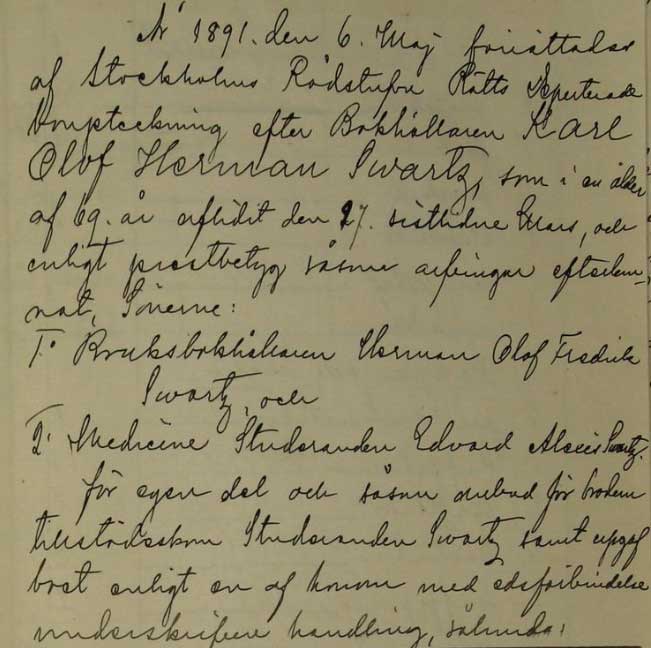 År 1891. den 6. Maj förrättades
af Stockholms Rådstufvu Rätts Deputerade
bouppteckning efter Bokhållaren Karl
Olof Herman Swartz, som i en ålder
af 69. år aflidit den 27. sistlidne Mars, och
enligt prestbetyg såsom arfvingar efterlem-
nat, Sönerne:
1º Bruksbokhållaren Herman Olof Fredrik
Swartz, och
2º Medicine Studeranden Edvard Alexis Swartz.
för egen del och såsom ombud för brodern
tillstädeskom Studeranden Swartz samt uppgaf
boet enligt en af honom med edsförbindelse
underskrifven handling, sålunda: